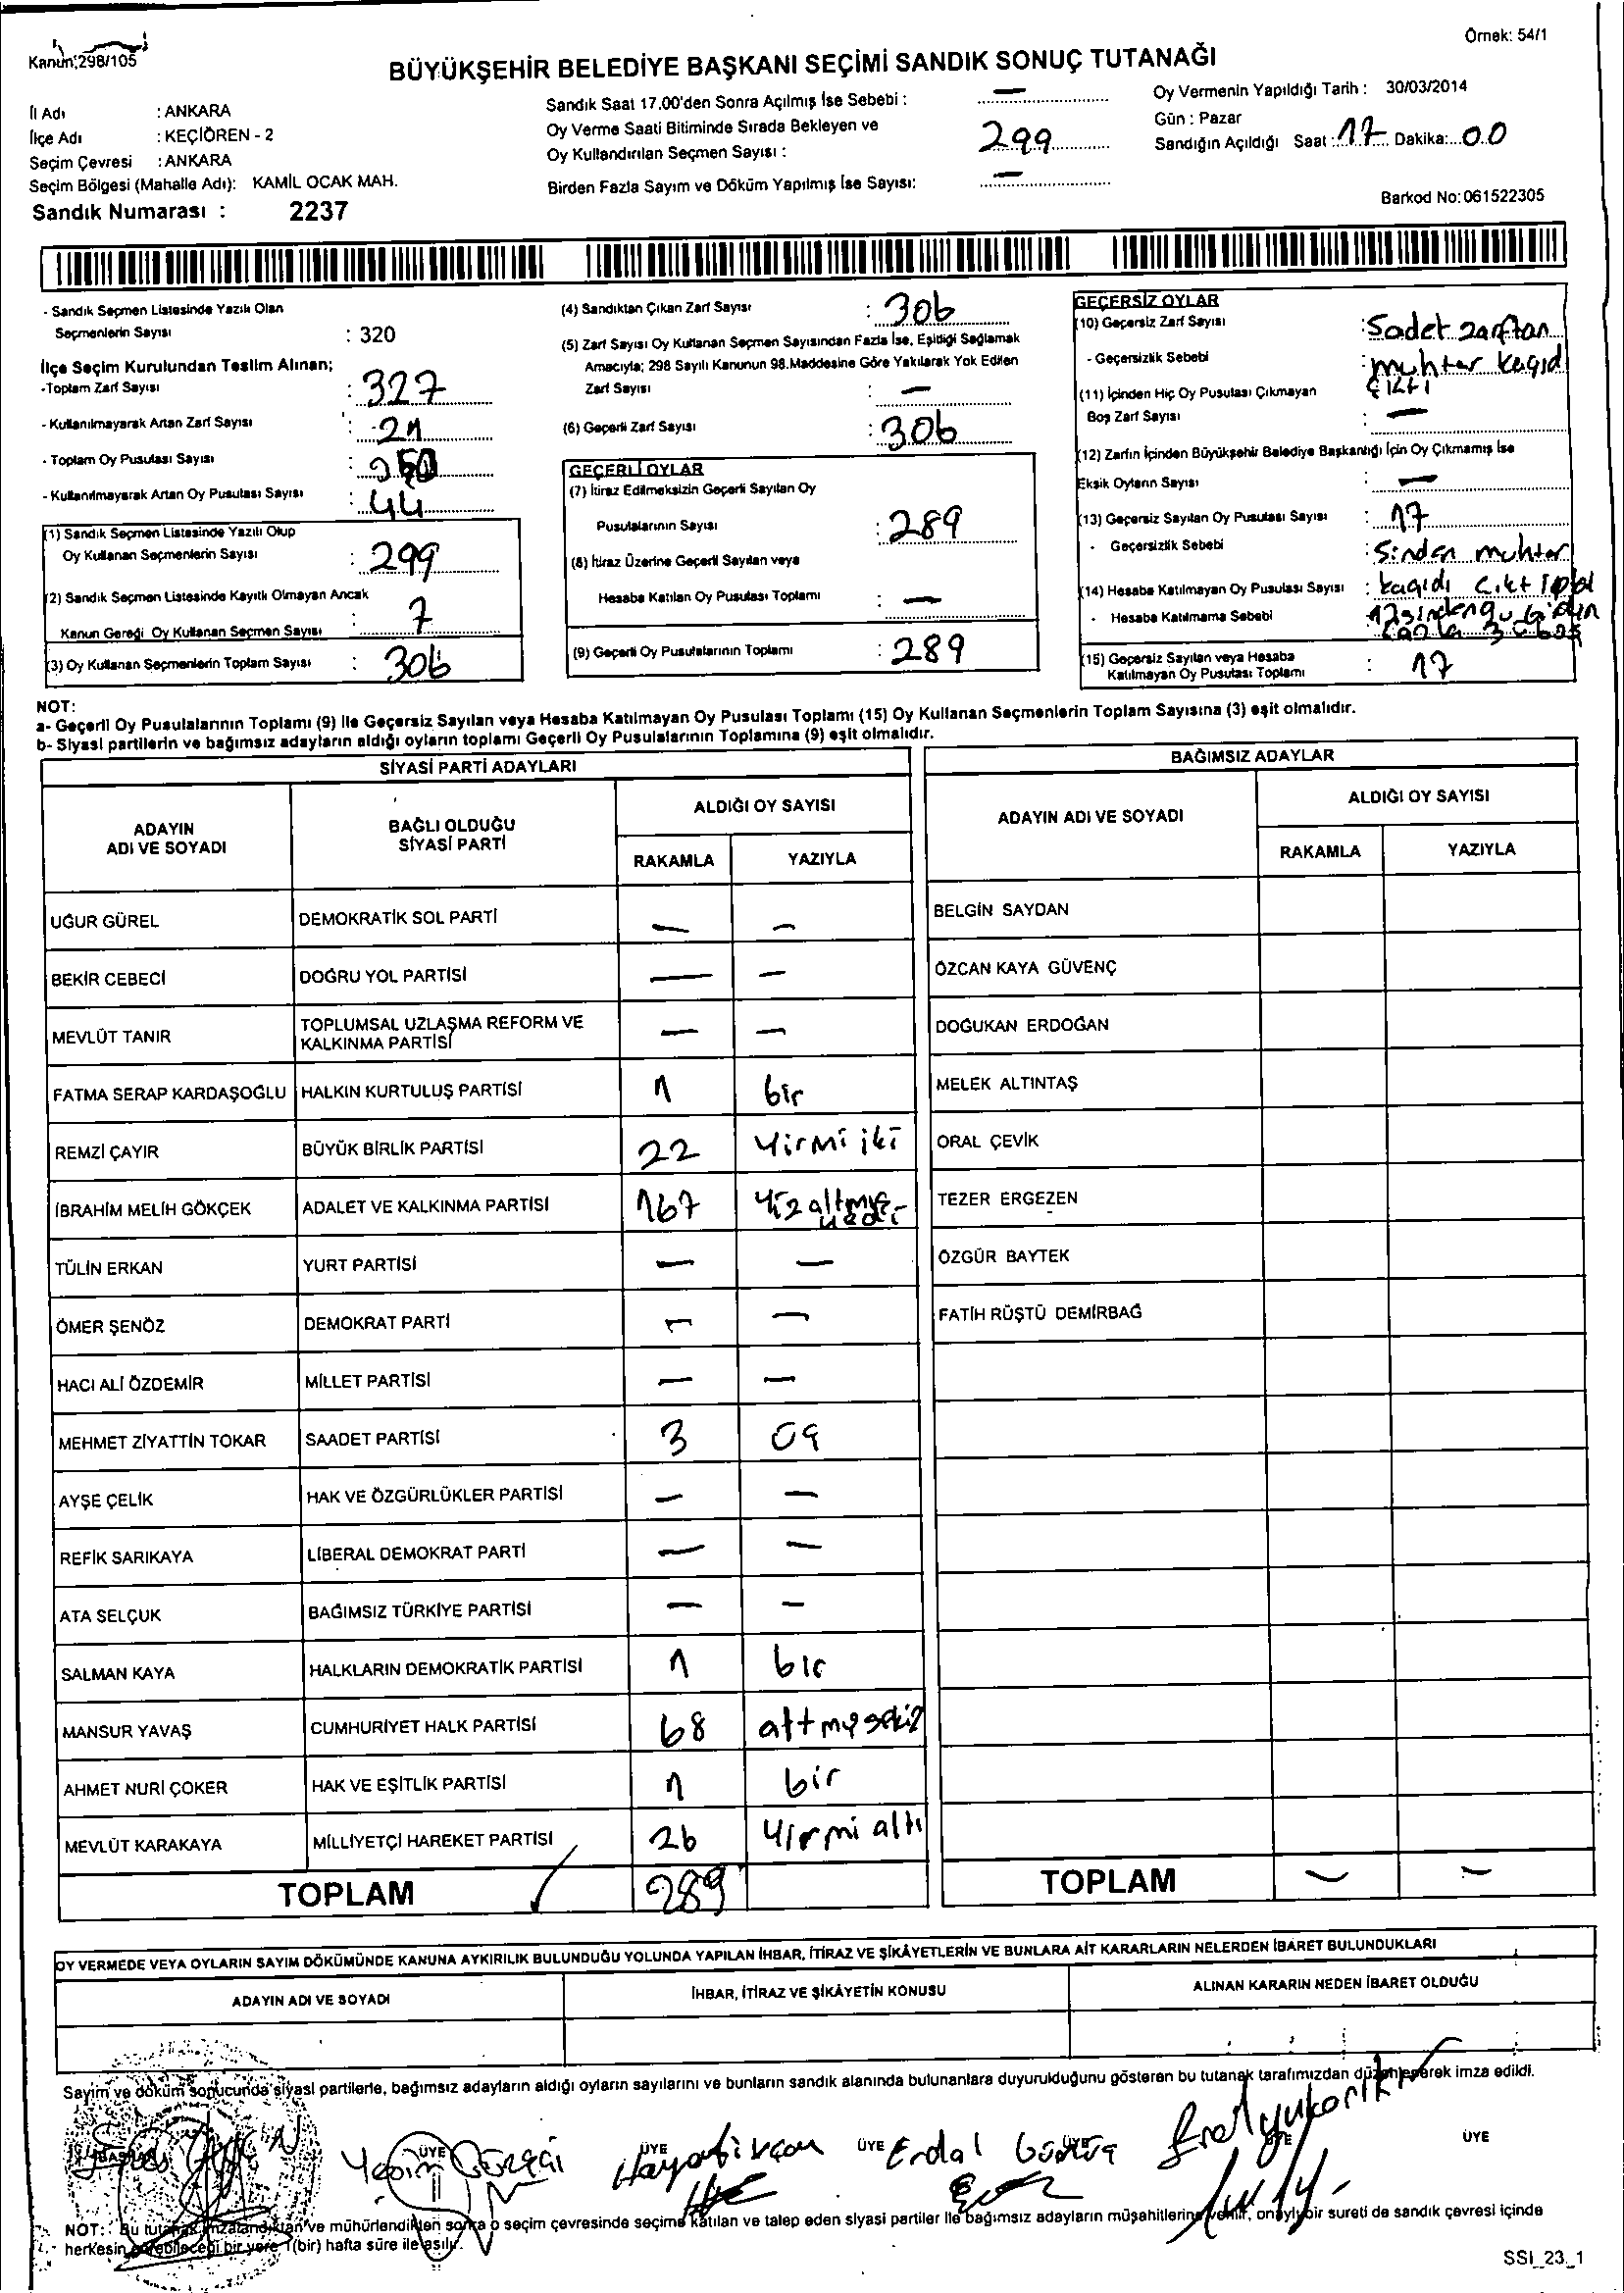 Kanun:298/105
Örnek: 54/1
BÜYÜKŞEHİR BELEDİYE BAŞKANI SEÇİMİ SANDIK SONUÇ TUTANAĞI
İl Adı : ANKARA
İlçe Adı : KEÇİÖREN - 2
Seçim Çevresi : ANKARA
Seçim Bölgesi (Mahalle Adı): KAMİL OCAK MAH.
Sandık Numarası : 2237
Sandık Saat 17.00'den Sonra Açılmış İse Sebebi : —
Oy Verme Saati Bitiminde Sırada Bekleyen ve
Oy Kullandırılan Seçmen Sayısı : 299
Birden Fazla Sayım ve Döküm Yapılmış İse Sayısı: —
Oy Vermenin Yapıldığı Tarih : 30/03/2014
Gün : Pazar
Sandığın Açıldığı Saat : 17 Dakika: 00
Barkod No: 061522305
- Sandık Seçmen Listesinde Yazılı Olan
Seçmenlerin Sayısı : 320
İlçe Seçim Kurulundan Teslim Alınan;
-Toplam Zarf Sayısı : 327
- Kullanılmayarak Artan Zarf Sayısı : 21
- Toplam Oy Pusulası Sayısı :
- Kullanılmayarak Artan Oy Pusulası Sayısı : 44
(1) Sandık Seçmen Listesinde Yazılı Olup
Oy Kullanan Seçmenlerin Sayısı : 299
(2) Sandık Seçmen Listesinde Kayıtlı Olmayan Ancak
Kanun Gereği Oy Kullanan Seçmen Sayısı : 7
(3) Oy Kullanan Seçmenlerin Toplam Sayısı : 306
(4) Sandıktan Çıkan Zarf Sayısı : 306
(5) Zarf Sayısı Oy Kullanan Seçmen Sayısından Fazla İse, Eşitliği Sağlamak
Amacıyla; 298 Sayılı Kanunun 98.Maddesine Göre Yakılarak Yok Edilen
Zarf Sayısı : —
(6) Geçerli Zarf Sayısı : 306
GEÇERLİ OYLAR
(7) İtiraz Edilmeksizin Geçerli Sayılan Oy
Pusulalarının Sayısı : 289
(8) İtiraz Üzerine Geçerli Sayılan veya
Hesaba Katılan Oy Pusulası Toplamı : —
(9) Geçerli Oy Pusulalarının Toplamı : 289
GEÇERSİZ OYLAR
(10) Geçersiz Zarf Sayısı : Sadet zarftan
- Geçersizlik Sebebi : muhtar kagıd
çıktı
(11) İçinden Hiç Oy Pusulası Çıkmayan
Boş Zarf Sayısı : —
(12) Zarfın İçinden Büyükşehir Belediye Başkanlığı İçin Oy Çıkmamış İse
Eksik Oyların Sayısı : —
(13) Geçersiz Sayılan Oy Pusulası Sayısı : 17
- Geçersizlik Sebebi : Sinden muhtar
(14) Hesaba Katılmayan Oy Pusulası Sayısı : kagıdı çıktı
- Hesaba Katılmama Sebebi
(15) Geçersiz Sayılan veya Hesaba
Katılmayan Oy Pusulası Toplamı : 17
NOT:
a- Geçerli Oy Pusulalarının Toplamı (9) ile Geçersiz Sayılan veya Hesaba Katılmayan Oy Pusulası Toplamı (15) Oy Kullanan Seçmenlerin Toplam Sayısına (3) eşit olmalıdır.
b- Siyasi partilerin ve bağımsız adayların aldığı oyların toplamı Geçerli Oy Pusulalarının Toplamına (9) eşit olmalıdır.
SİYASİ PARTİ ADAYLARI
ADAYIN ADI VE SOYADI BAĞLI OLDUĞU SİYASİ PARTİ ALDIĞI OY SAYISI
RAKAMLA YAZIYLA
UĞUR GÜREL DEMOKRATİK SOL PARTİ — —
BEKİR CEBECİ DOĞRU YOL PARTİSİ — —
MEVLÜT TANIR TOPLUMSAL UZLAŞMA REFORM VE KALKINMA PARTİSİ — —
FATMA SERAP KARDAŞOĞLU HALKIN KURTULUŞ PARTİSİ 1 bir
REMZİ ÇAYIR BÜYÜK BİRLİK PARTİSİ 22 Yirmi iki
İBRAHİM MELİH GÖKÇEK ADALET VE KALKINMA PARTİSİ 167 Yüz altmış yedi
TÜLİN ERKAN YURT PARTİSİ — —
ÖMER ŞENÖZ DEMOKRAT PARTİ — —
HACI ALİ ÖZDEMİR MİLLET PARTİSİ — —
MEHMET ZİYATTİN TOKAR SAADET PARTİSİ 3 üç
AYŞE ÇELİK HAK VE ÖZGÜRLÜKLER PARTİSİ — —
REFİK SARIKAYA LİBERAL DEMOKRAT PARTİ — —
ATA SELÇUK BAĞIMSIZ TÜRKİYE PARTİSİ — —
SALMAN KAYA HALKLARIN DEMOKRATİK PARTİSİ 1 bir
MANSUR YAVAŞ CUMHURİYET HALK PARTİSİ 68 altmış sekiz
AHMET NURİ ÇOKER HAK VE EŞİTLİK PARTİSİ 1 bir
MEVLÜT KARAKAYA MİLLİYETÇİ HAREKET PARTİSİ 26 Yirmi altı
TOPLAM 289
BAĞIMSIZ ADAYLAR
ADAYIN ADI VE SOYADI ALDIĞI OY SAYISI
RAKAMLA YAZIYLA
BELGİN SAYDAN
ÖZCAN KAYA GÜVENÇ
DOĞUKAN ERDOĞAN
MELEK ALTINTAŞ
ORAL ÇEVİK
TEZER ERGEZEN
ÖZGÜR BAYTEK
FATİH RÜŞTÜ DEMİRBAĞ
TOPLAM — —
OY VERMEDE VEYA OYLARIN SAYIM DÖKÜMÜNDE KANUNA AYKIRILIK BULUNDUĞU YOLUNDA YAPILAN İHBAR, İTİRAZ VE ŞİKÂYETLERİN VE BUNLARA AİT KARARLARIN NELERDEN İBARET BULUNDUKLARI
ADAYIN ADI VE SOYADI İHBAR, İTİRAZ VE ŞİKÂYETİN KONUSU ALINAN KARARIN NEDEN İBARET OLDUĞU
Sayim ve döküm sonucunda siyasi partilerle, bağımsız adayların aldığı oyların sayılarını ve bunların sandık alanında bulunanlara duyurulduğunu gösteren bu tutanak tarafımızdan düzenlenerek imza edildi.
ÜYE ÜYE ÜYE Erdal ÜYE ÜYE
NOT: Bu tutanak imzalandıktan ve mühürlendikten sonra o seçim çevresinde seçime katılan ve talep eden siyasi partiler ile bağımsız adayların müşahitlerine verilir, onaylı bir sureti de sandık çevresi içinde
herkesin görebileceği bir yere 1(bir) hafta süre ile asılır.
SSI_23_1